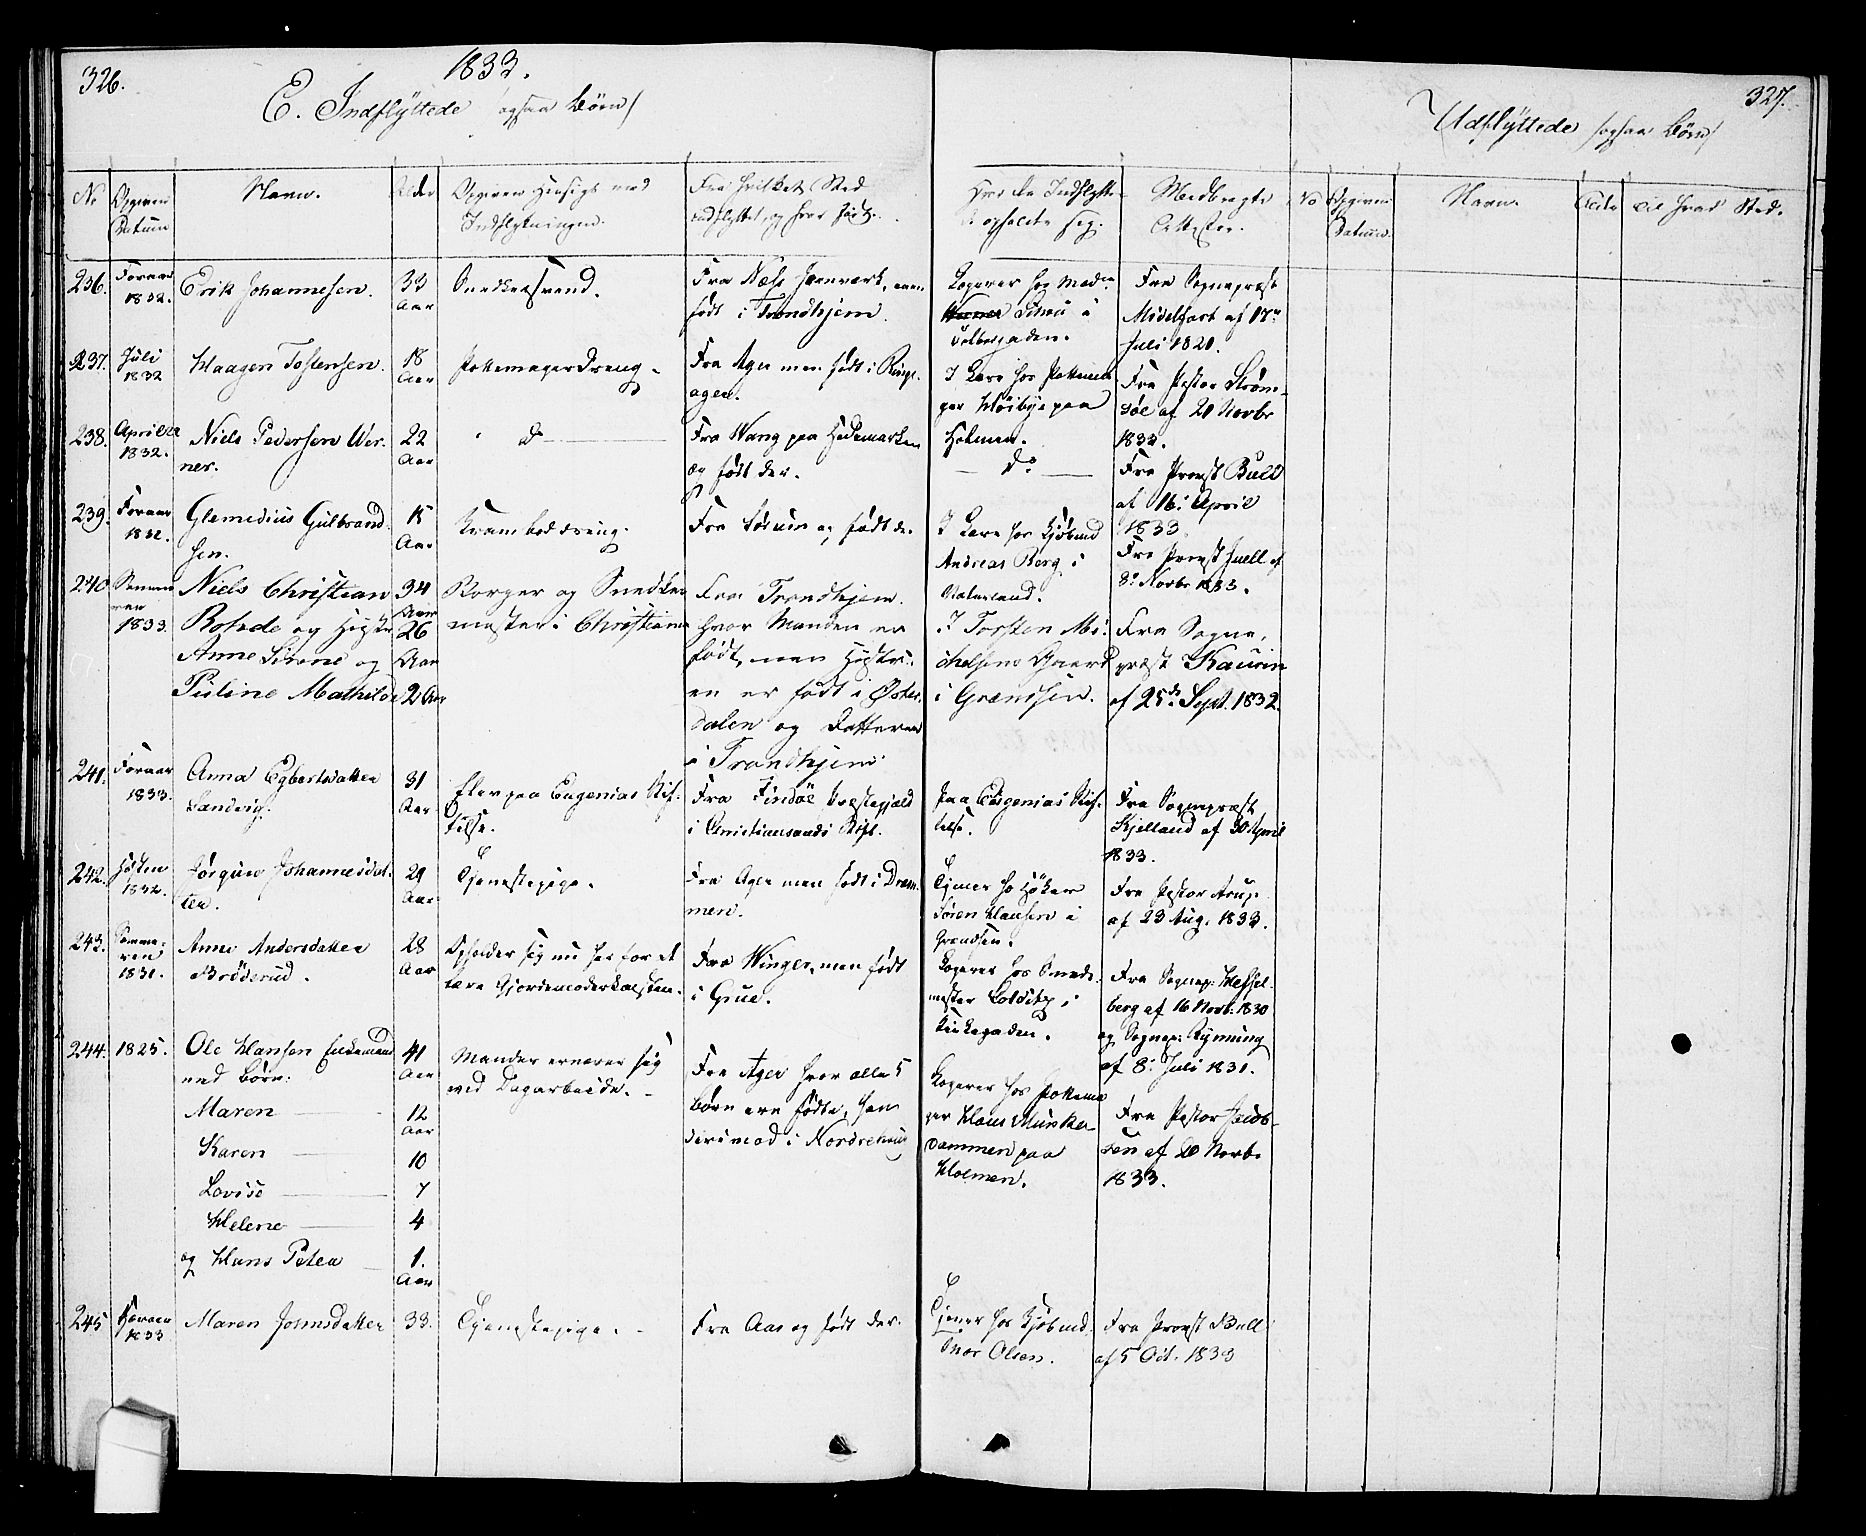 326.
1833.
327.
E. Indflyttede /ogsaa Børn/
Udflyttede /ogsaa Børn/
No
Opgiven
Datum
Navn.
Alder
Opgiven Hensigt med
Indflytningen.
Fra hvilket Sted
indflyttet, og hvor født.
Hvor de Indflytte
opholde sig.
Medbragte
Attester.
No
Opgiven
Datum.
Navn.
Alder
til hvad Sted.
236.
Foraar
1832.
Erik Johannesen.
33
Aar
Snedkersvend.
Fra Næs Jernværk, men
født i Trondhjem.
Logerer hos Mad.
i
Toldbodgaden.
Fra Sognepræst
Midelfart af 17de
Juli 1820.
237.
Juli
1832
Haagen Tostensen.
18
Aar
Pottemagerdreng
Fra Ager men født i Ringe-
ager.
I Lære hos Pottema
ger Høibye paa
Holmen.
Fra Pastor Strøm-
søe af 20 Novbr
1833.
238.
April
1832.
Niels Pedersen Wer-
ner.
22
Aar
do
Fra Wang paa Hedemarken
og født der.
do
Fra Provst Bull
af 16: April
1833
239.
Foraar
1832.
Glemedius Gulbrand-
sen.
15
Aar
Kramboddreng.
Fra Sørum og født der
I Lære hos Kjøbmd
Andreas Berg i
Vaterland.
Fra Provst Juell af
8: Novbr 1833.
240
Somme
ren
1833.
Niels Christian
Rohde og Hustr
Anne Sirene og
Puline Mathilde
34
Aar
26
Aar
2 Aar
Borger og Snedker
mester i Christiania
Fra Trondhjem.
hvor Manden er
født, men Hustru-
en er født i Øster-
dalen og Datteren
i Trondhjem
I Torsten Mi-
chelsens Gaard
i Grændsen.
Fra Sogne-
præst Kaurin
af 25de Sept. 1832.
241.
Foraar
1833.
Anna Egbertsdatter
Sandvig.
31
Aar
Elev paa Eugenias Stif-
telse.
Fra Findøe Præstegjæld
i Christiansands Stift.
Paa Eugenias Stif-
telse.
Fra Sognepræst
Kjelland af 30 April
1833.
242.
Høsten
1832.
Jørgine Johannesdat-
ter.
29
Aar
Tjenestepige.
Fra Ager men født i Dram-
men.
Tjener ho Høker
Søren Hansen i
Grændsen.
Fra Pastor Arup
af 23 Aug. 1833.
243.
Somme-
ren
1831.
Anne Andersdatter
Brøderud.
28
Aar
Opholder sig nu her for at
lære Gjordemoderkonsten.
Fra Winger, men født
i Grue.
Logerer hos Smed-
mester Colditz i
Kirkegaden.
Fra Sognep: Hessel-
berg af 16 Novb: 1830
og Sognep: Rynning
af 8: Juli 1831.
244.
1825.
Ole Hansen Enkemand
med Børn:
Maren
Karen
Lovise
Helene
og Hans Peter
41
Aar
12
Aar
10
7
4
1.
Aar
Manden ernærer sig
ved Dagarbeide.
Fra Ager hvor alle 5
Børn ere fødte, han
derimod i Nordrehoug
Logerer hos Pottema
ger Hans Munke-
dammen paa
Holmen.
Fra Pastor
sen af 20 Novbr
1833.
245
Foraar
1833
Maren Jonsdatter
33.
Tjenestepige.
Fra Aas og født der.
Tjener hos Kjøbmd.
Thor Olsen.
Fra Provst Bull
af 5 Oct. 1833